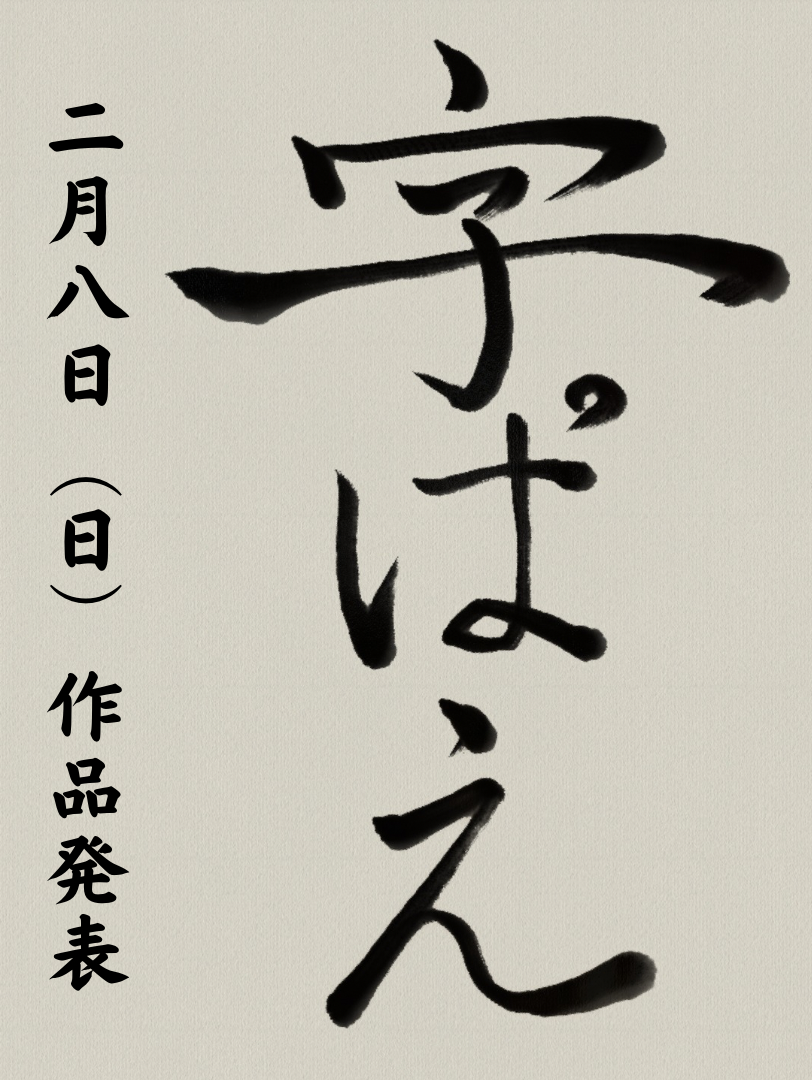 字ぱえ
二月八日（日）作品発表